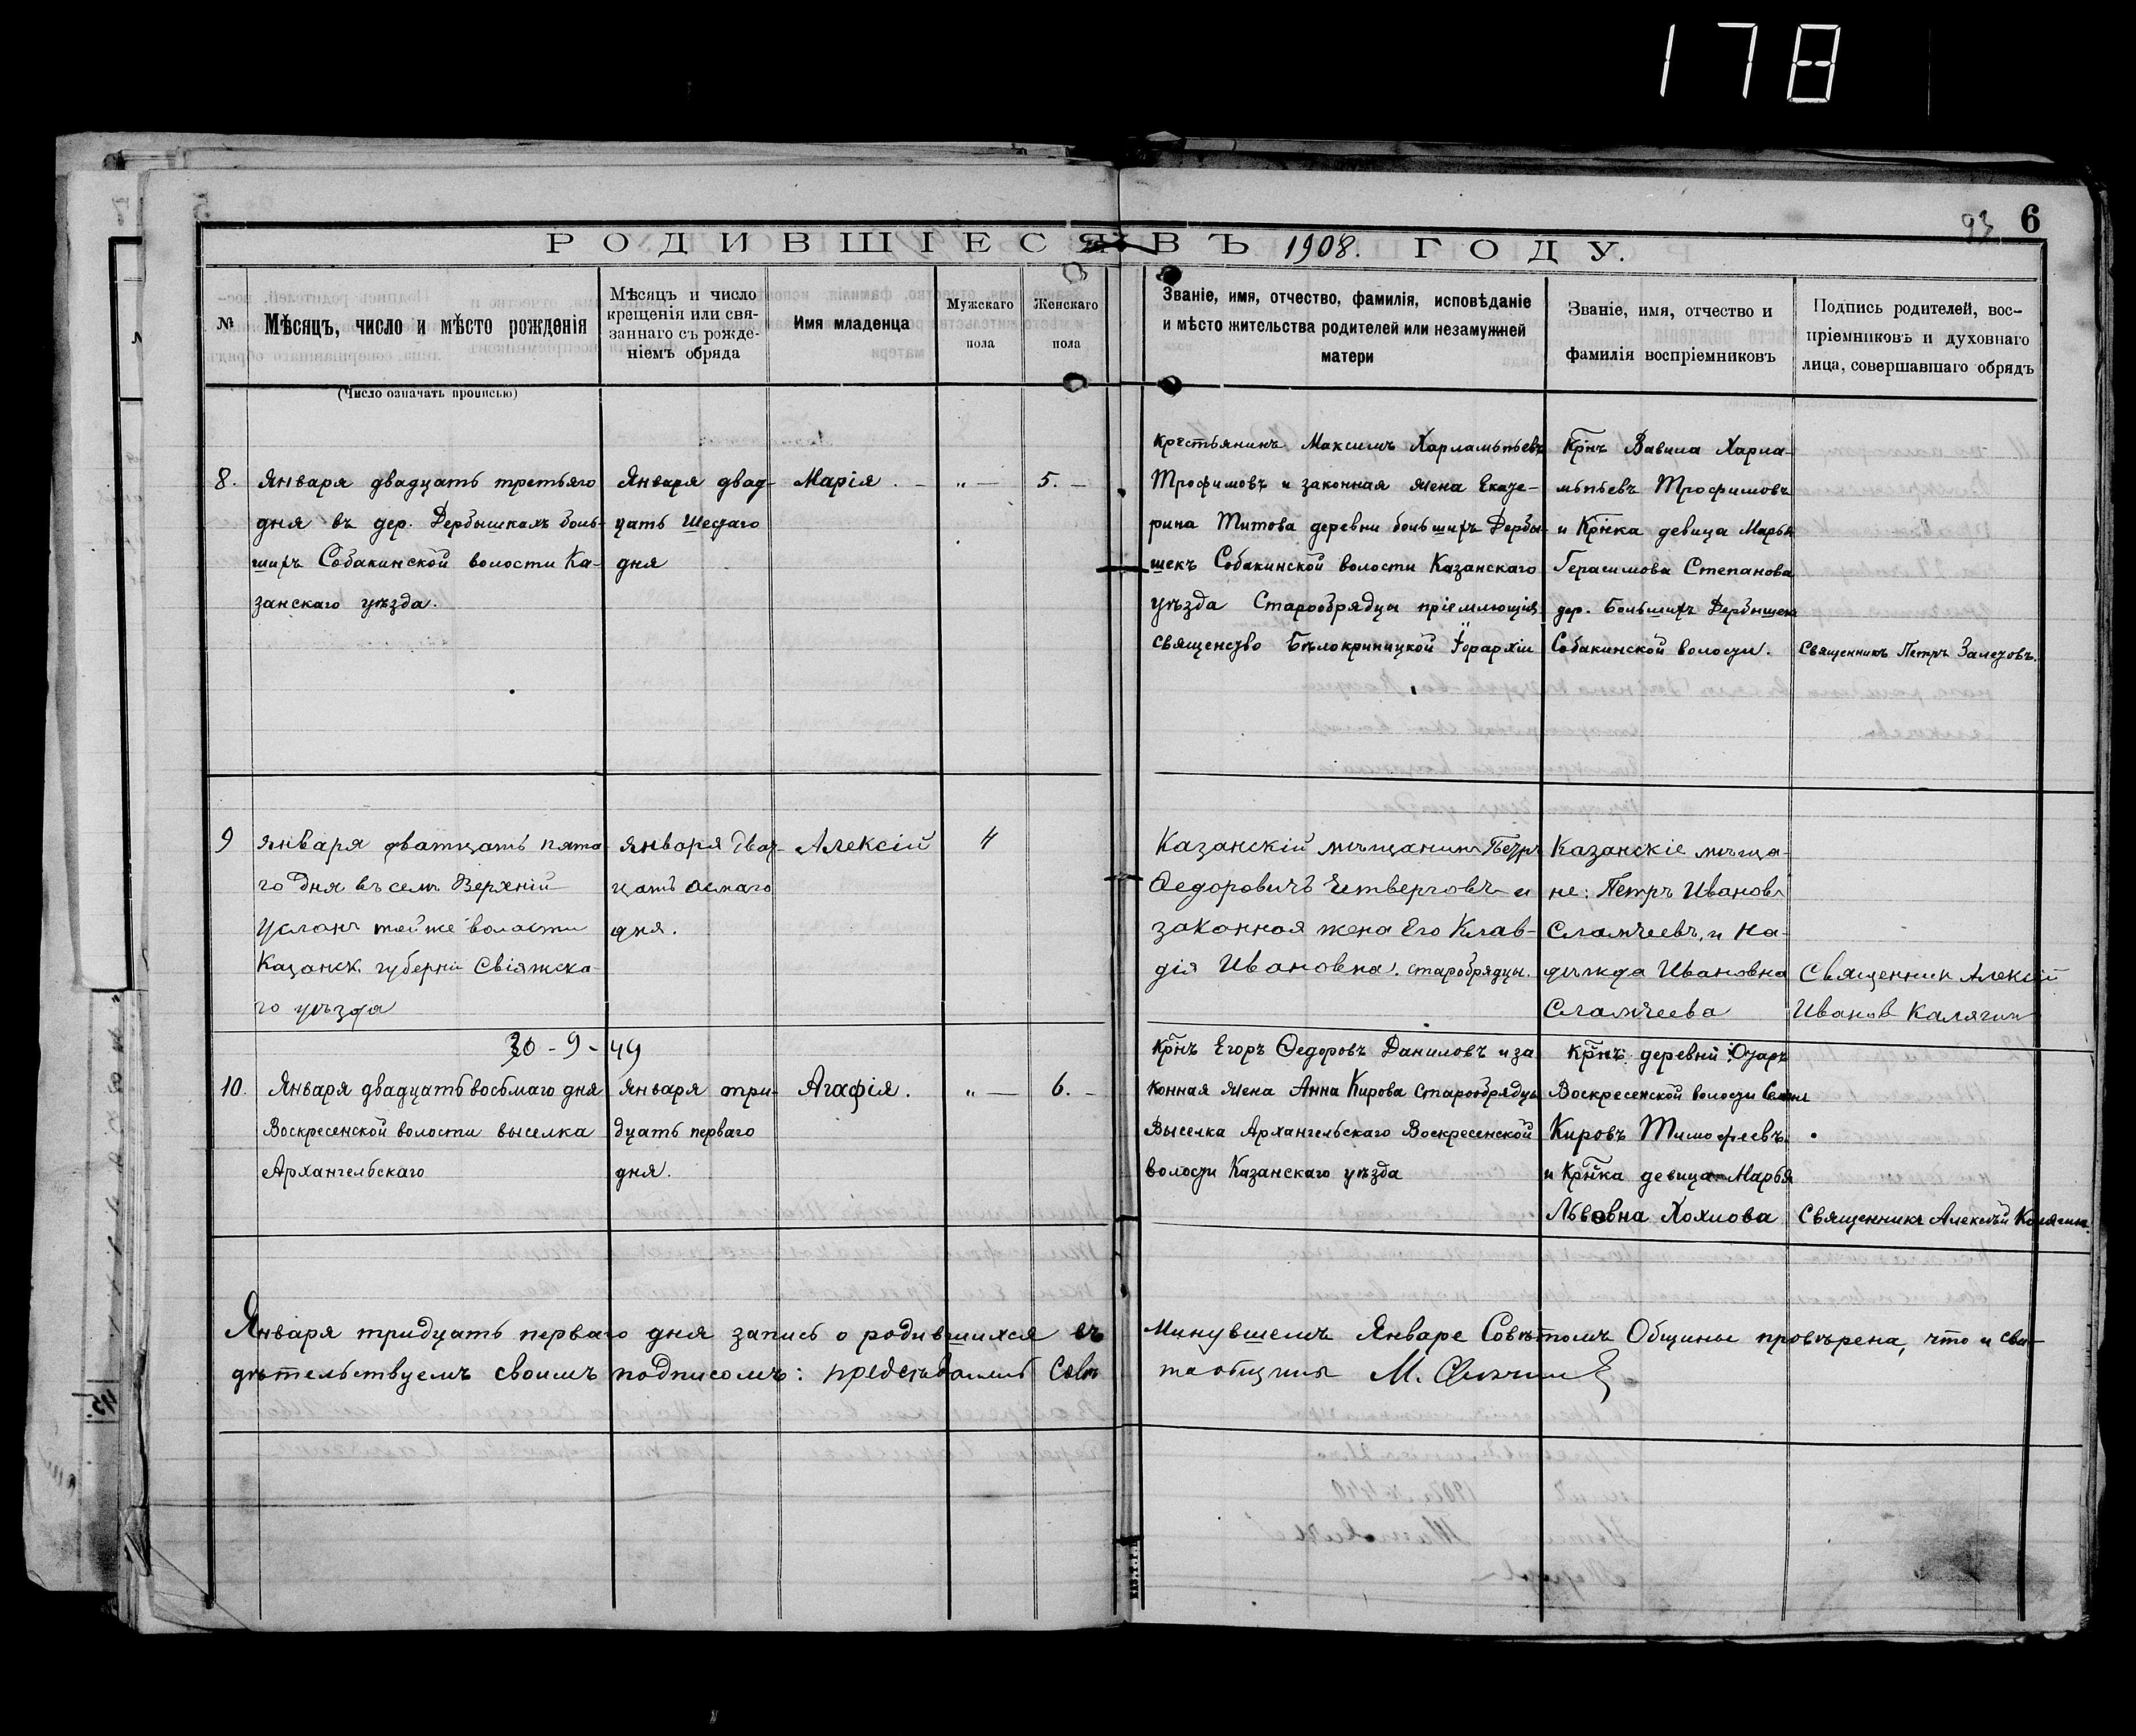 178
93 6
РОДИВШІЕСЯ ВЪ 1908. ГОДУ.
№
Мѣсяцъ, число и мѣсто рожденія
(Число означать прописью)
Мѣсяцъ и число
крещенія или свя-
заннаго съ рожде-
ніемъ обряда
Имя младенца
Мужскаго
пола
Женскаго
пола
Званіе, имя, отчество, фамилія, исповѣданіе
и мѣсто жительства родителей или незамужней
матери
Званіе, имя, отчество и
фамилія воспріемниковъ
Подпись родителей, вос-
пріемниковъ и духовнаго
лица, совершавшаго обрядъ
8.
Января двадцать третьяго
дня въ дер. Дербышкахъ боль-
шихъ Собакинской волости Ка-
занскаго уѣзда.
Января двад-
цать шестаго
дня
Марія. -
„ -
5. -
крестьянинъ Максимъ Харлампьевъ
Трофимовъ и законная жена Екате-
рина Титова деревни большихъ Дербы-
шекъ Собакинской волости Казанскаго
уѣзда Старообрядцы пріемлющія
священство Бѣлокриницкой Іерархіи
Крнъ Вавила Харла-
мпьевъ Трофимовъ
и Крнка девица Марья
Герасимова Степанова
дер. Большихъ Дербышекъ
Собакинской волости.
Священникъ Петръ Залетовъ.
9
января дватцать пята-
го дня въ селѣ Верхній
Услонъ той же воласти
Казанск. губерніи Свіяжска-
го уѣзда
января двад-
цать осмаго
дня.
Алексій
4
Казанскій мѣщанинъ Петръ
Ѳедоровичъ Четверговъ и
законная жена Его Клав-
дія Ивановна. старобрядцы.
Казанскіе мѣща-
не: Петръ Ивановъ
Сламчеевъ, и На-
дѣжда Ивановна
Сламчеева
Священник Алексій
Иванов Калягин
30 - 9 - 49
10.
Января двадцать восьмаго дня
Воскресенской волости выселка
Архангельскаго
Января три-
дцать перваго
дня.
Агафія.
„ -
6. -
Крнъ Егоръ Ѳедоровъ Даниловъ и за
конная жена Анна Кирова Старообрядцы
Выселка Архангельскаго Воскресенской
волости Казанскаго уѣзда
Крнъ деревни Отаръ
Воскресенской волости
Кировъ Тимофеевъ
и Крнка девица Марья
Львовна Хохлова
Священникъ Алексѣй Калягин
Января тридцать перваго дня запись о родившихся въ минувшемъ Январе Совѣтомъ Общины провѣрена, что и сви-
дѣтельствуемъ своимъ подписомъ: председатель Совѣ та общины М.